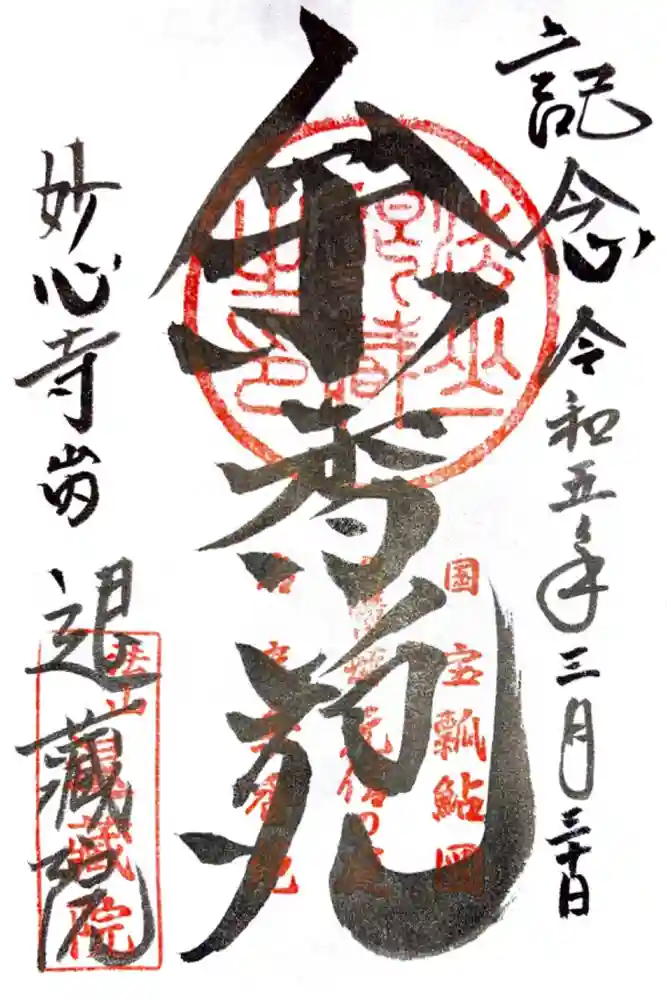 記念 令和五年三月三十日
余香苑
妙心寺山内
退藏院
国宝瓢鮎図
法山退藏院